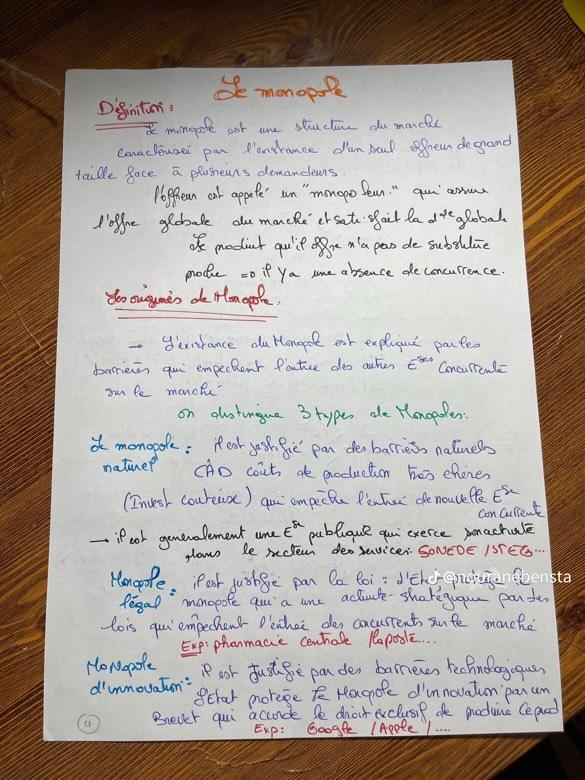 Le monopole
Définition :
Le monopole est une structure du marché
caractérisée par l'existance d'un seul offreur de grand
taille face à plusieurs demandeurs.
l'offreur est appelé un "monopoleur." qui assure
l'offre globale du marché et satisfait la dde globale
Le produit qu'il offre n'a pas de substitue
proche => il ya une absence de concurrence.
Les origines de Monopole.
→ L'existance du Monopole est expliqué par les
barrières qui empechent l'entrée des autres Eses Concurrente
sur le marché
on distingue 3 types de Monopoles:
Le monopole naturel : il est justifié par des barrières naturels
CÀD coûts de production très chères
(Invest couteuse) qui empêche l'entrée de nouvelle Ese
concurrente
→ il est generalement une Ese publique qui exerce son activité
dans le secteur des services. SONEDE / STEG...
Monopole légal : il est justifié par la loi : l'Etat
@nouranebensta
monopole qui a une activité stratégique par des
lois qui empechent l'entrée des concurrents sur le marché
Exp: pharmacie centrale / la poste....
Monopole d'innovation : il est justifié par des barrières technologiques
L'Etat protège le Monopole d'innovation par un
Brevet qui accorde le droit exclusif de produire ce prod
Exp: Google / Apple / ....
4